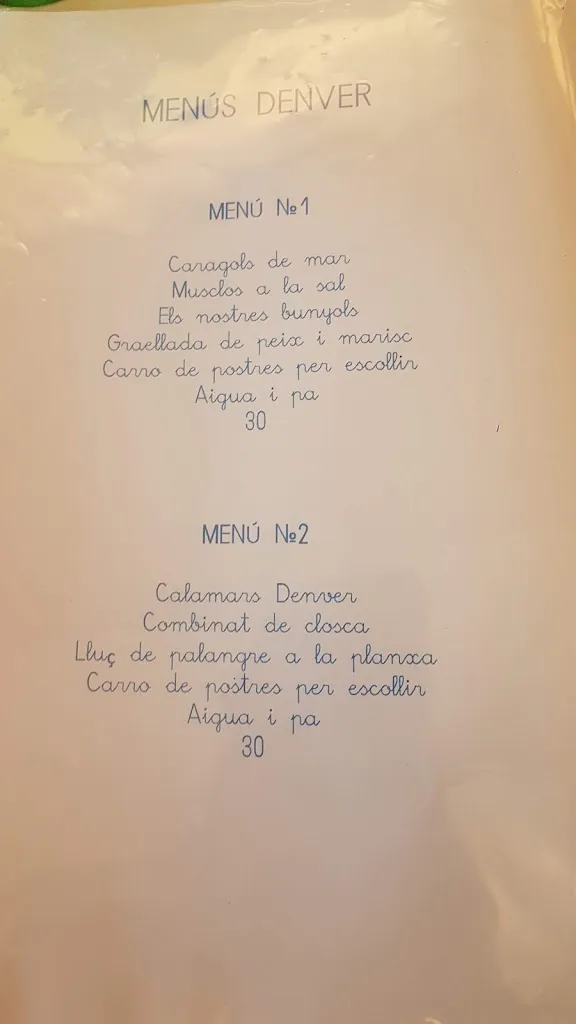 MENÚS DENVER
MENÚ Nº1
Caragols de mar
Musclos a la sal
Els nostres bunyols
Graellada de peix i marisc
Carro de postres per escollir
Aigua i pa
30
MENÚ Nº2
Calamars Denver
Combinat de closca
Lluç de palangre a la planxa
Carro de postres per escollir
Aigua i pa
30